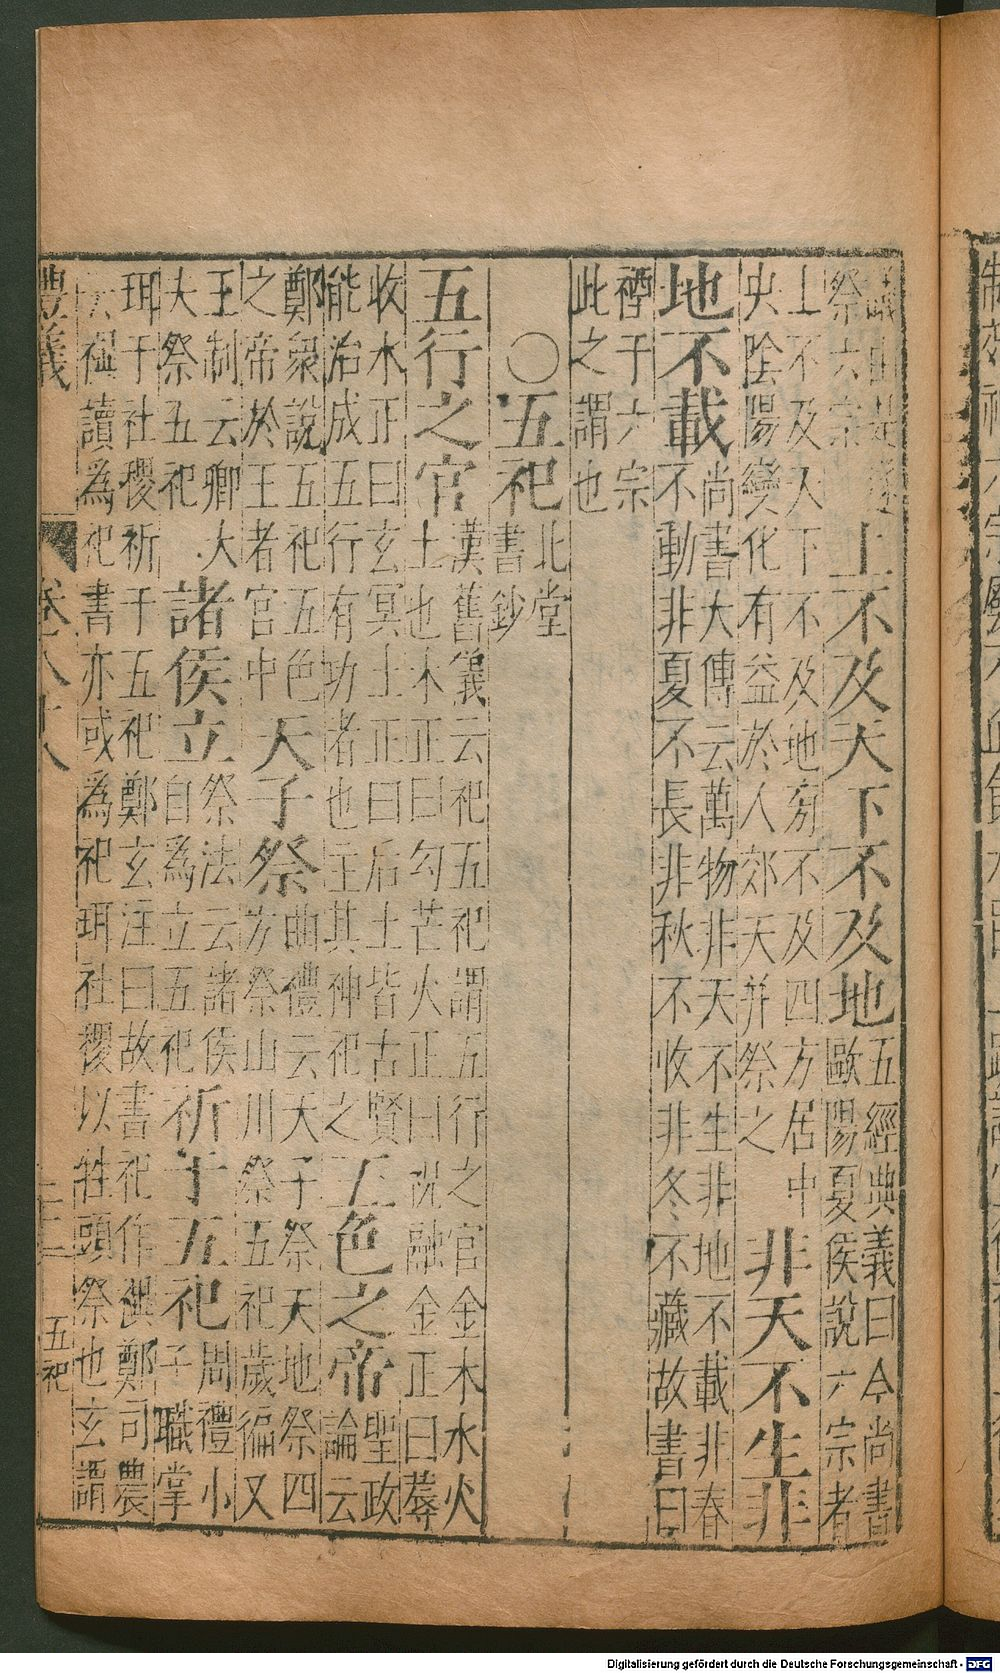 祭六宗
上不及天下不及地
五經典義曰今尚書
歐陽夏侯說六宗者
上不及天下不及地旁不及四方居中
央陰陽變化有益於人郊天并祭之
非天不生非
地不載
尚書大傳云萬物非天不生非地不載非春
不動非夏不長非秋不收非冬不藏故書曰
禋于六宗
此之謂也
○五祀
北堂
書鈔
五行之官
漢舊儀云祀五祀謂五行之官金木水火
土也木正曰勾芒火正曰祝融金正曰蓐
收水正曰玄冥土正曰后土皆古賢
能治成五行有功者也主其神祀之
五色之帝
聖政
論云
鄭衆說五祀五色
之帝於王者宮中
天子祭
曲禮云天子祭天地祭四
方祭山川祭五祀歲徧又
王制云卿大
夫祭五祀
諸侯立
祭法云諸侯
自為立五祀
祈于五祀
周禮小
子職掌
珥于社稷祈于五祀鄭玄注曰故書祀作禩鄭司農
云禩讀為祀書亦或為祀珥社稷以牲頭祭也玄謂
豊義
卷八十八
五祀
Digitalisierung gefördert durch die Deutsche Forschungsgemeinschaft - DFG